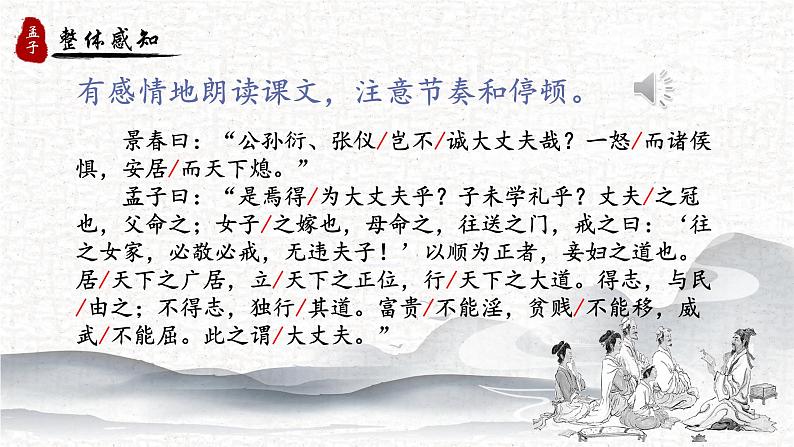 孟子
整体感知
有感情地朗读课文，注意节奏和停顿。
景春曰：“公孙衍、张仪/岂不/诚大丈夫哉？一怒/而诸侯
惧，安居/而天下熄。”
孟子曰：“是焉得/为大丈夫乎？子未学礼乎？丈夫/之冠
也，父命之；女子/之嫁也，母命之，往送之门，戒之曰：‘往
之女家，必敬必戒，无违夫子！’以顺为正者，妾妇之道也。
居/天下之广居，立/天下之正位，行/天下之大道。得志，与民
/由之；不得志，独行/其道。富贵/不能淫，贫贱/不能移，威
武/不能屈。此之谓/大丈夫。”